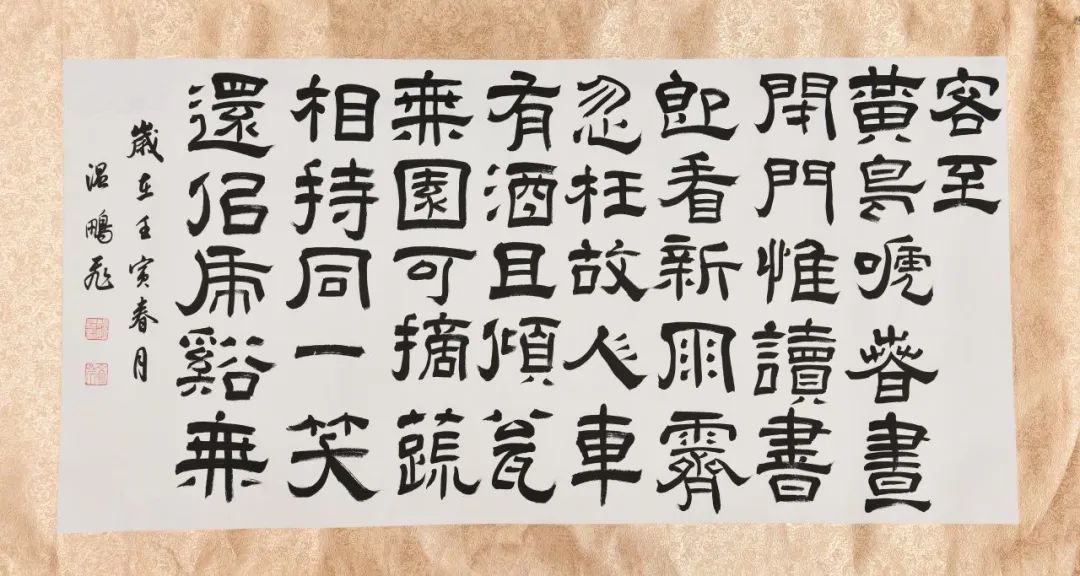 客至
黃鳥嗁萅晝
閉門惟讀書
即看新雨霽
忽枉故人車
有酒且傾瓮
無園可摘蔬
相持同一笑
還佀虎谿無
歲在壬寅春月
温鵬飛